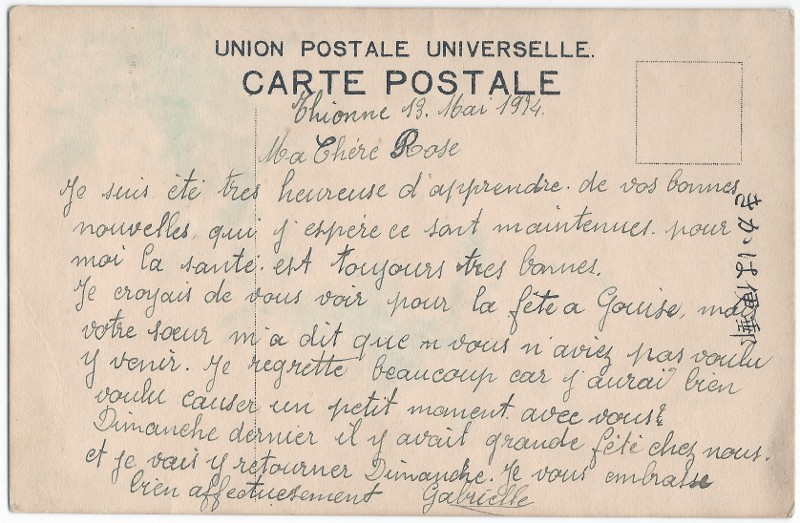 UNION POSTALE UNIVERSELLE.
CARTE POSTALE
Thionne 13. Mai 1914.
Ma Chére Rose
Je suis été tres heureuse d'apprendre. de vos bonnes
nouvelles, qui j'espére ce sont maintenues. pour
moi la santé. est toujours tres bonnes.
Je croyais de vous voir pour la fête a Gouise, mais
votre sœur m'a dit que n vous n'aviez pas voulu
y venir. Je regrette beaucoup car j'aurai bien
voulu causer un petit moment avec vous
Dimanche dernier il y avait grande fété chez nous.
et je vais y retourner Dimanche. Je vous embrasse
bien affectuesement Gabrielle
きかは便郵